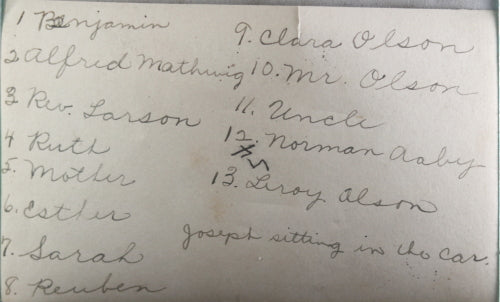 1 Benjamin
2 Alfred Mathwig
3 Rev. Larson
4 Ruth
5. Mother
6. Esther
7. Sarah
8. Reuben
9. Clara Olson
10. Mr. Olson
11. Uncle
12. Norman Aaby
13. Leroy Olson
Joseph sitting in the car.